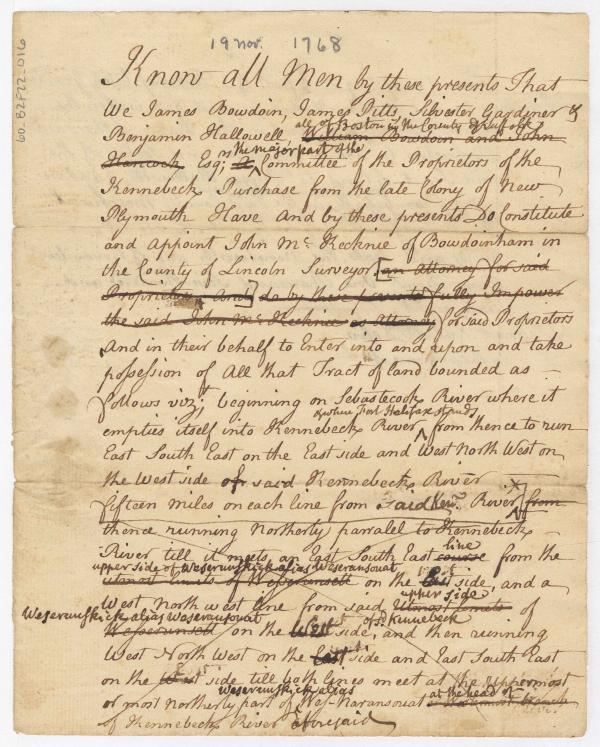 60-82F22-016
19 nov. 1768
Know all Men by these presents That
We James Bowdoin, James Pitts, Silvester Gardiner &
all of Boston in the County of Suffolk
Benjamin Hallowell, William Bowdoin and John
the major part of the
Hancock Esqrs; a Committee of the Proprietors of the
Kennebeck Purchase from the late Colony of New
Plymouth Have And by these presents Do Constitute
and Appoint John Mc Kecknie of Bowdoinham in
the County of Lincoln Surveyor [an Attorney for said
Proprietors And] do by these presents fully Impower
the said John Mc Kecknie as Attorney for said Proprietors
And in their behalf to Enter into and upon and take
possession of All that Tract of land bounded as
follows vizt; beginning on Sebastecook River where it
& where Fort Halifax stands
empties itself into Kennebeck River from thence to run
East South East on the East side and West North West on
the West side of said Kennebeck River
fifteen miles on each line from said Kenn. River from
thence running Northerly parralel to Kennebeck
River till it meets an East South East course line from the
upper side of Weserunskick alias Weseransouat
utmost limits of Wesserunsett on the East side, and a
upper side
West North west line from said Utmost limits of
Weserunskick alias Weseransouat of sd. Kennebeck
Wesserunsett on the West side, and then running
West North West on the East side and East South East
on the West side till both lines meet at the uppermost
Weserunskick alias at the head of
or most northerly part of Wes-Naransouat
of Kennebeck River Aforesaid